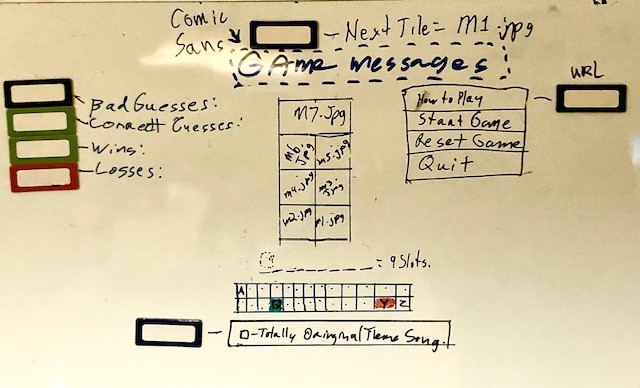 Comic
Sans
Next Tile = M1.jpg
GAme messages
URL
Bad Guesses:
Correct Guesses:
Wins:
Losses:
M7.Jpg
M6.Jpg
M5.Jpg
M4.jpg
M3.Jpg
M2.jpg
M1.jpg
How to Play
Start Game
Reset Game
Quit
= 9 Slots.
A
Y Z
Totally Original Theme Song.